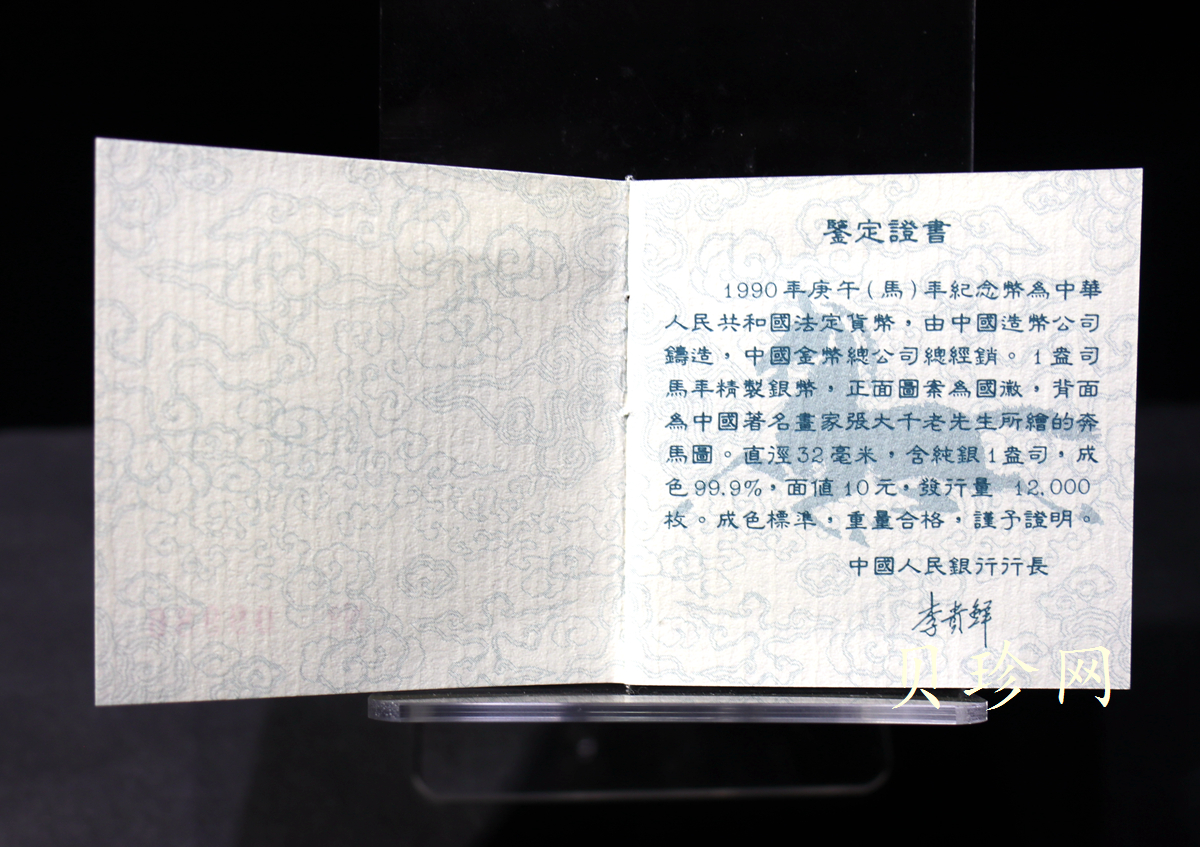 鑒定證書
1990年庚午(馬)年紀念幣為中華
人民共和國法定貨幣，由中國造幣公司
鑄造，中國金幣總公司總經銷。1盎司
馬年精製銀幣，正面圖案為國徽，背面
為中國著名畫家張大千老先生所繪的奔
馬圖。直徑32毫米，含純銀1盎司，成
色99.9%，面值10元，發行量 12,000
枚。成色標準，重量合格，謹予證明。
中國人民銀行行長
李貴鮮
贝珍网